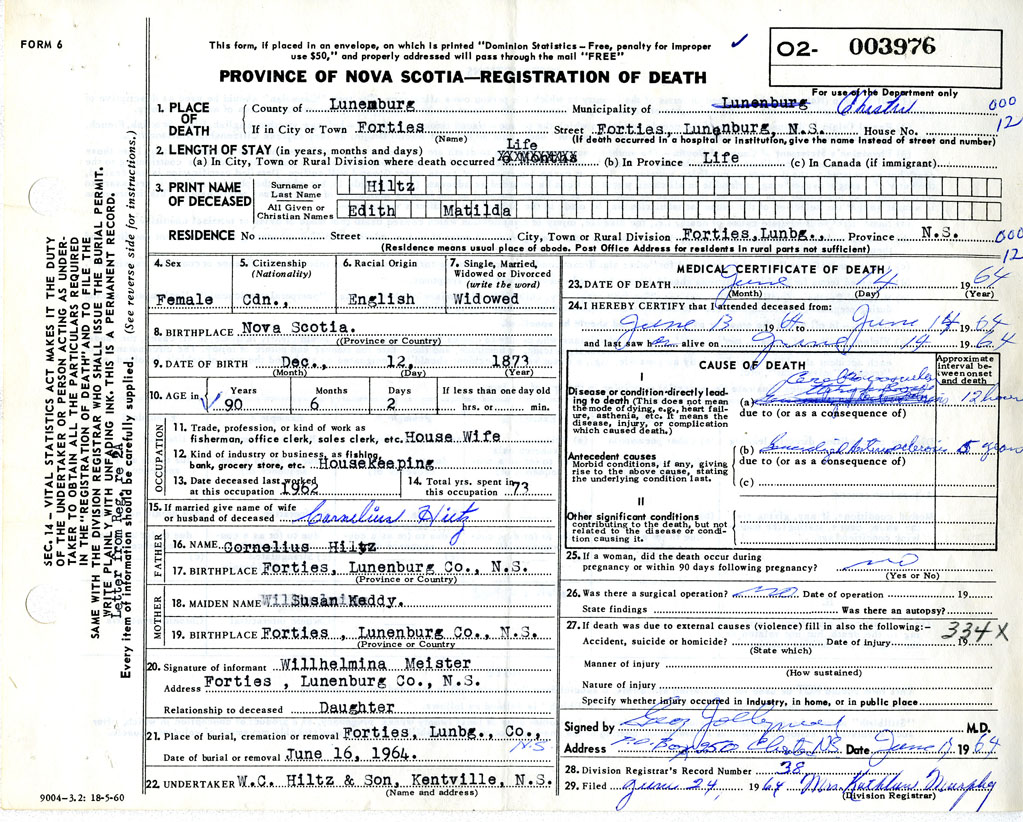 FORM 6
This form, if placed in an envelope, on which is printed "Dominion Statistics – Free, penalty for improper
use $50," and properly addressed will pass through the mail "FREE"
✓
O2- 003976
PROVINCE OF NOVA SCOTIA—REGISTRATION OF DEATH
For use of the Department only
1. PLACE OF DEATH
County of Lunemburg Municipality of Lunenburg Chester 000
If in City or Town Forties Street Forties, Lunenburg, N.S. House No. 12
(Name) (If death occurred in a hospital or institution, give the name instead of street and number)
2. LENGTH OF STAY (in years, months and days) Life
(a) In City, Town or Rural Division where death occurred 6 Months (b) In Province Life (c) In Canada (if immigrant)
3. PRINT NAME OF DECEASED
Surname or Last Name Hiltz
All Given or Christian Names Edith Matilda
RESIDENCE No Street City, Town or Rural Division Forties, Lunbg., Province N.S. 000
(Residence means usual place of abode. Post Office Address for residents in rural parts not sufficient) 12
4. Sex 5. Citizenship (Nationality) 6. Racial Origin 7. Single, Married, Widowed or Divorced (write the word)
Female Cdn., English Widowed
8. BIRTHPLACE Nova Scotia.
(Province or Country)
9. DATE OF BIRTH Dec., 12, 1873
(Month) (Day) (Year)
10. AGE in Years Months Days If less than one day old
90 6 2 hrs. or min.
OCCUPATION
11. Trade, profession, or kind of work as
fisherman, office clerk, sales clerk, etc. House Wife
12. Kind of industry or business, as fishing,
bank, grocery store, etc. Housekeeping
13. Date deceased last worked at this occupation 1962
14. Total yrs. spent in this occupation 73
15. If married give name of wife
or husband of deceased Cornelius Hiltz
FATHER
16. NAME Cornelius Hiltz
17. BIRTHPLACE Forties, Lunenburg Co., N.S.
(Province or Country)
MOTHER
18. MAIDEN NAME Susan Keddy.
19. BIRTHPLACE Forties , Lunenburg Co., N.S.
(Province or Country
20. Signature of informant Willhelmina Meister
Address Forties , Lunenburg Co., N.S.
Relationship to deceased Daughter
21. Place of burial, cremation or removal Forties, Lunbg., Co.,
N.S
Date of burial or removal June 16, 1964.
22. UNDERTAKER W.C. Hiltz & Son, Kentville, N.S.
(Name and address)
9004-3.2: 18-5-60
MEDICAL CERTIFICATE OF DEATH
23. DATE OF DEATH June 14 1964
(Month) (Day) (Year)
24. I HEREBY CERTIFY that I attended deceased from:
June 13 1964 to June 14 1964
and last saw her alive on June 14 1964
CAUSE OF DEATH
Approximate interval between onset and death
I
Disease or condition directly leading to death (This does not mean
the mode of dying, e.g., heart failure, asthenia, etc. It means the
disease, injury, or complication
which caused death.)
(a) 12 hours
due to (or as a consequence of)
Antecedent causes
Morbid conditions, if any, giving
rise to the above cause, stating
the underlying condition last.
(b) Arteriosclerosis 5 years
due to (or as a consequence of)
(c)
II
Other significant conditions
contributing to the death, but not
related to the disease or condition causing it.
25. If a woman, did the death occur during
pregnancy or within 90 days following pregnancy? no
(Yes or No)
26. Was there a surgical operation? no Date of operation 19
State findings Was there an autopsy?
27. If death was due to external causes (violence) fill in also the following:– 334X
Accident, suicide or homicide? Date of injury 19
(State which)
Manner of injury
(How sustained)
Nature of injury
Specify whether injury occurred in industry, in home, or in public place
Signed by M.D.
Address Chester NS Date June 1964
28. Division Registrar's Record Number 38
29. Filed June 24, 1964 Mrs. Kathleen Murphy
(Division Registrar)
SEC. 14 – VITAL STATISTICS ACT MAKES IT THE DUTY
OF THE UNDERTAKER OR PERSON ACTING AS UNDER-
TAKER TO OBTAIN ALL THE PARTICULARS REQUIRED
IN THE "REGISTRATION OF DEATH" AND TO FILE THE
SAME WITH THE DIVISION REGISTRAR WHO SHALL ISSUE THE BURIAL PERMIT.
WRITE PLAINLY WITH UNFADING INK. THIS IS A PERMANENT RECORD.
Letter from Reg. re 2A
Every item of information should be carefully supplied. (See reverse side for instructions.)